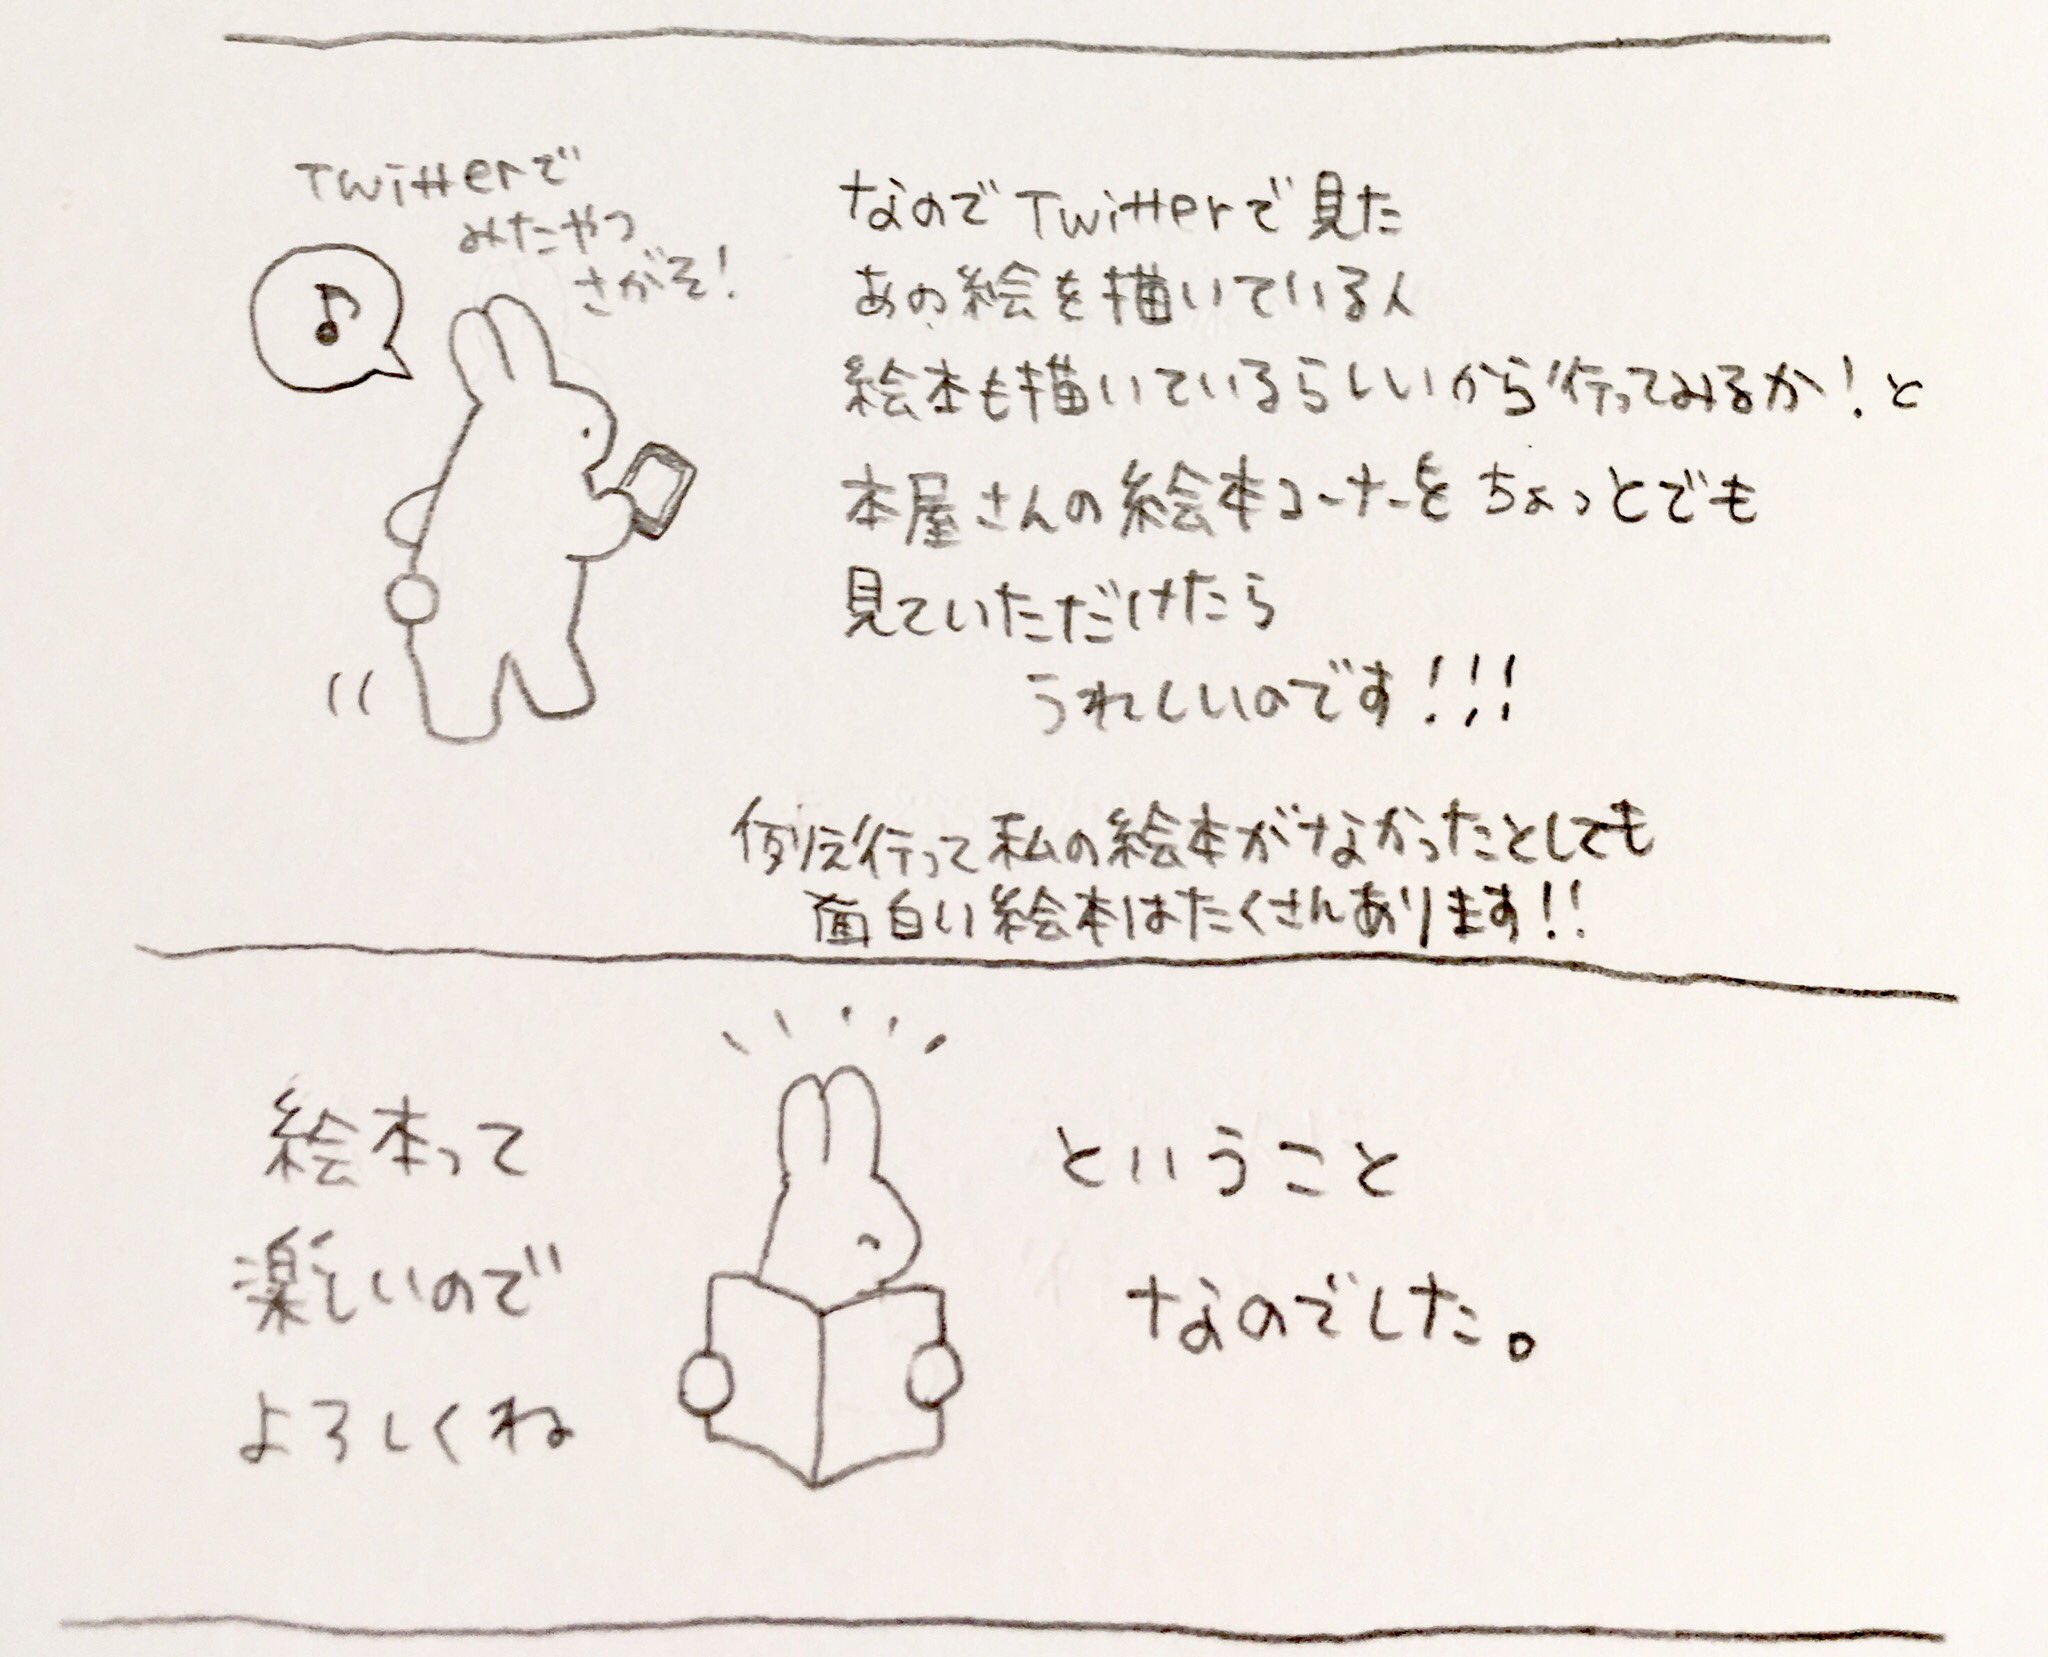 Twitterで
みたやつ
さがそ!
なのでTwitterで見た
あの絵を描いている人
絵本も描いているらしいから行ってみるか!と
本屋さんの絵本コーナーをちょっとでも
見ていただけたら
うれしいのです!!!
例え行って私の絵本がなかったとしても
面白い絵本はたくさんあります!!
絵本って
楽しいので
よろしくね
ということ
なのでした。